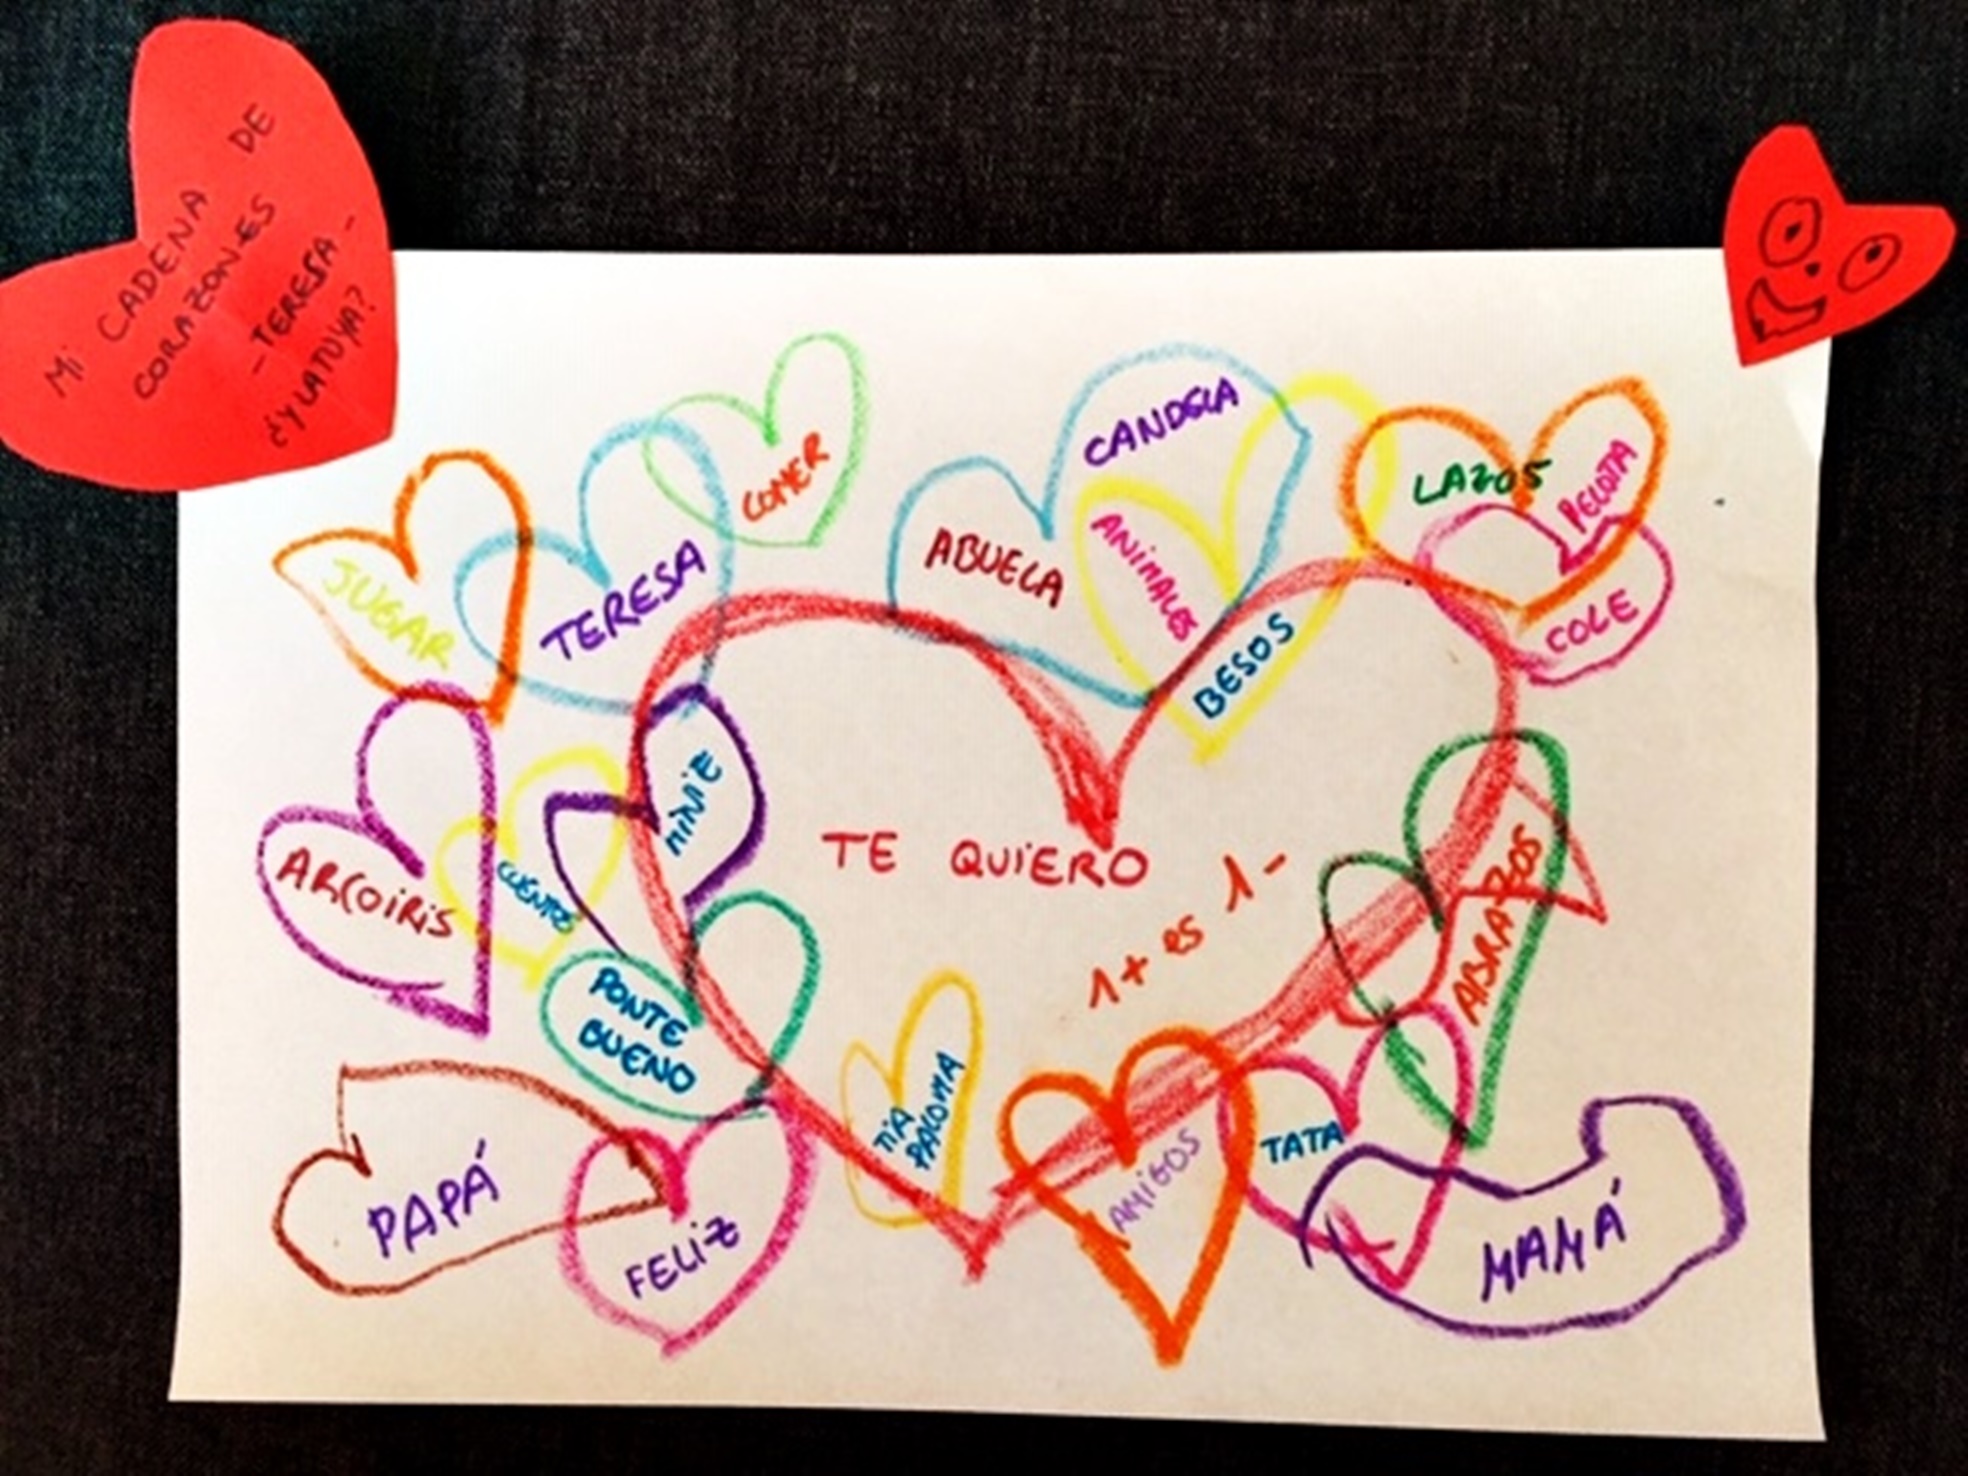 MI CADENA DE
CORAZONES
-TERESA-
¿Y LA TUYA?
COMER
CANDELA
LAZOS
PELOTA
JUGAR
TERESA
ABUELA
ANIMALES
BESOS
COLE
MINIE
ARCOIRIS
CUENTO
TE QUIERO
1+ es 1-
ABRAZOS
PONTE
BUENO
TIA
PALOMA
AMIGOS
TATA
PAPÁ
FELIZ
MAMÁ